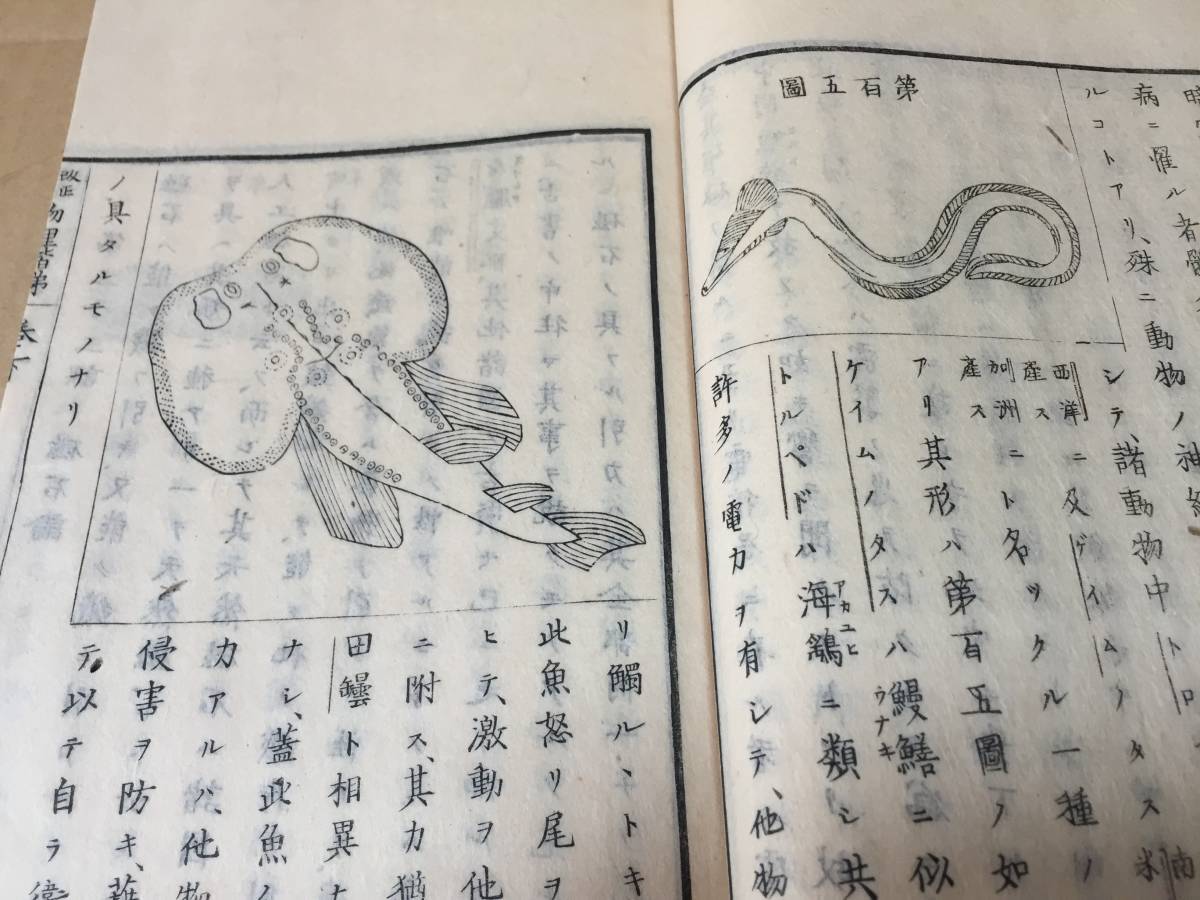 病ニ罹ル者
ルコトアリ、殊ニ動物ノ神経
第百五圖
シテ、諸動物中トロ
西洋
産ス
ニ及ゲイムノタス
南
米
加洲
産ス
ニト名ツクル一種ノ
アリ其形ハ第百五圖ノ如
ケイムノタスハ鰻鱔ニ似
ウナキ
トルペドハ海鷂ニ類シ共
アカエヒ
許多ノ電力ヲ有シテ、他物
リ觸ルヽトキ
此魚怒リ尾ヲ
ヒテ、激動ヲ他
ニ附ス、其力猶
田罎ト相異ナ
ナシ、蓋此魚ノ
力アルハ、他物
侵害ヲ防キ、
テ以テ自ラ衛
ノ具タルモノナリ
改正
物理